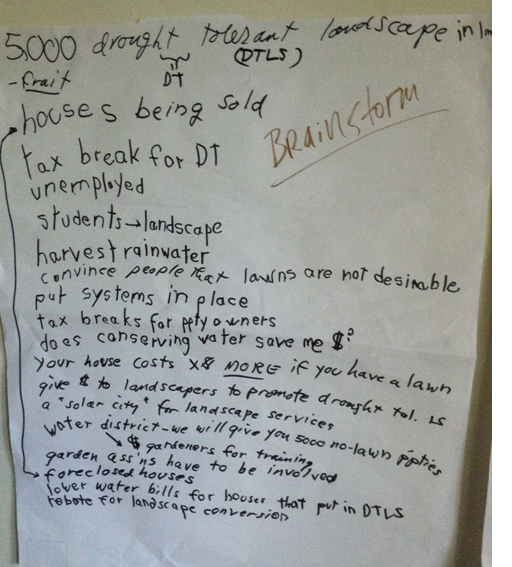 5,000 drought tolerant landscape in 1m
DT (DTLS)
- fruit
houses being sold
Brainstorm
tax break for DT
unemployed
students → landscape
harvest rainwater
convince people that lawns are not desirable
put systems in place
tax breaks for ppty owners
does conserving water save me $?
your house costs x$ MORE if you have a lawn
give $ to landscapers to promote drought tol. LS
a "solar city" for landscape services
water district - we will give you 5000 no-lawn ppties
↘ $ gardeners for training
garden ass'ns have to be involved
foreclosed houses
lower water bills for houses that put in DTLS
rebate for landscape conversion